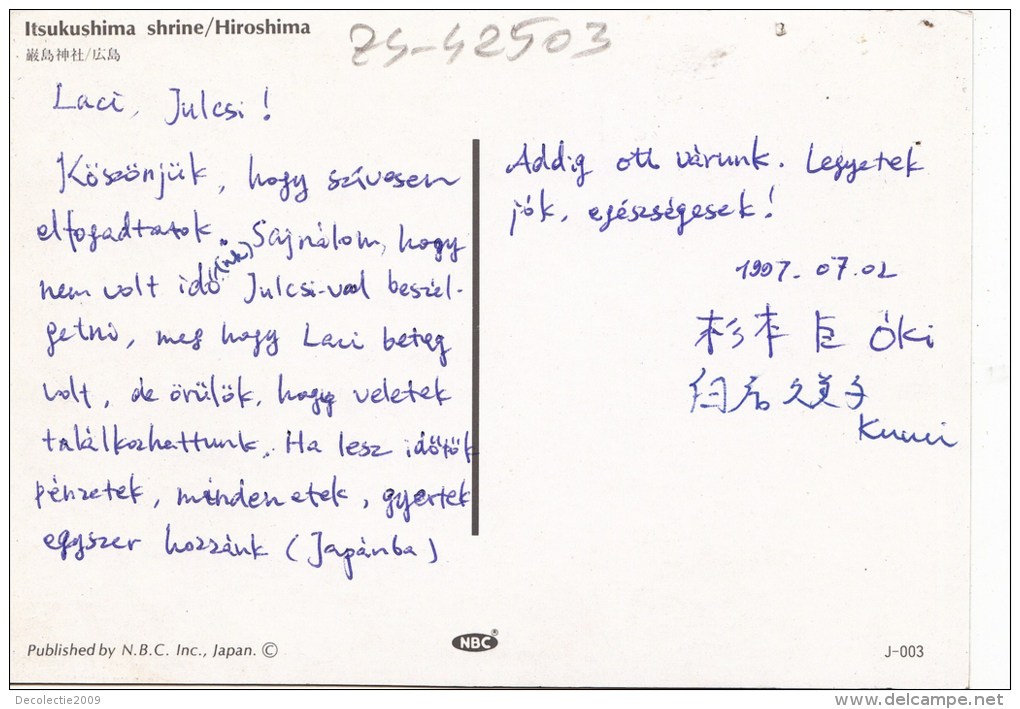 Itsukushima shrine/Hiroshima
厳島神社/広島
ZS-42503
Laci, Julcsi!
Köszönjük, hogy szívesen
elfogadtatok. Sajnálom, hogy
nem volt idő(nk) Julcsi-val beszél-
getni, meg hogy Laci beteg
volt, de örülök, hogy veletek
találkozhattunk. Ha lesz időtök
pénzetek, mindenetek, gyertek
egyszer hozzánk (Japánba)
Addig ott várunk. Legyetek
jók, egészségesek!
1997.07.02
杉本 臣 Óki
臼居久美子
Kumi
Published by N.B.C. Inc., Japan. ©
NBC®
J-003
Decolectie2009
www.delcampe.net